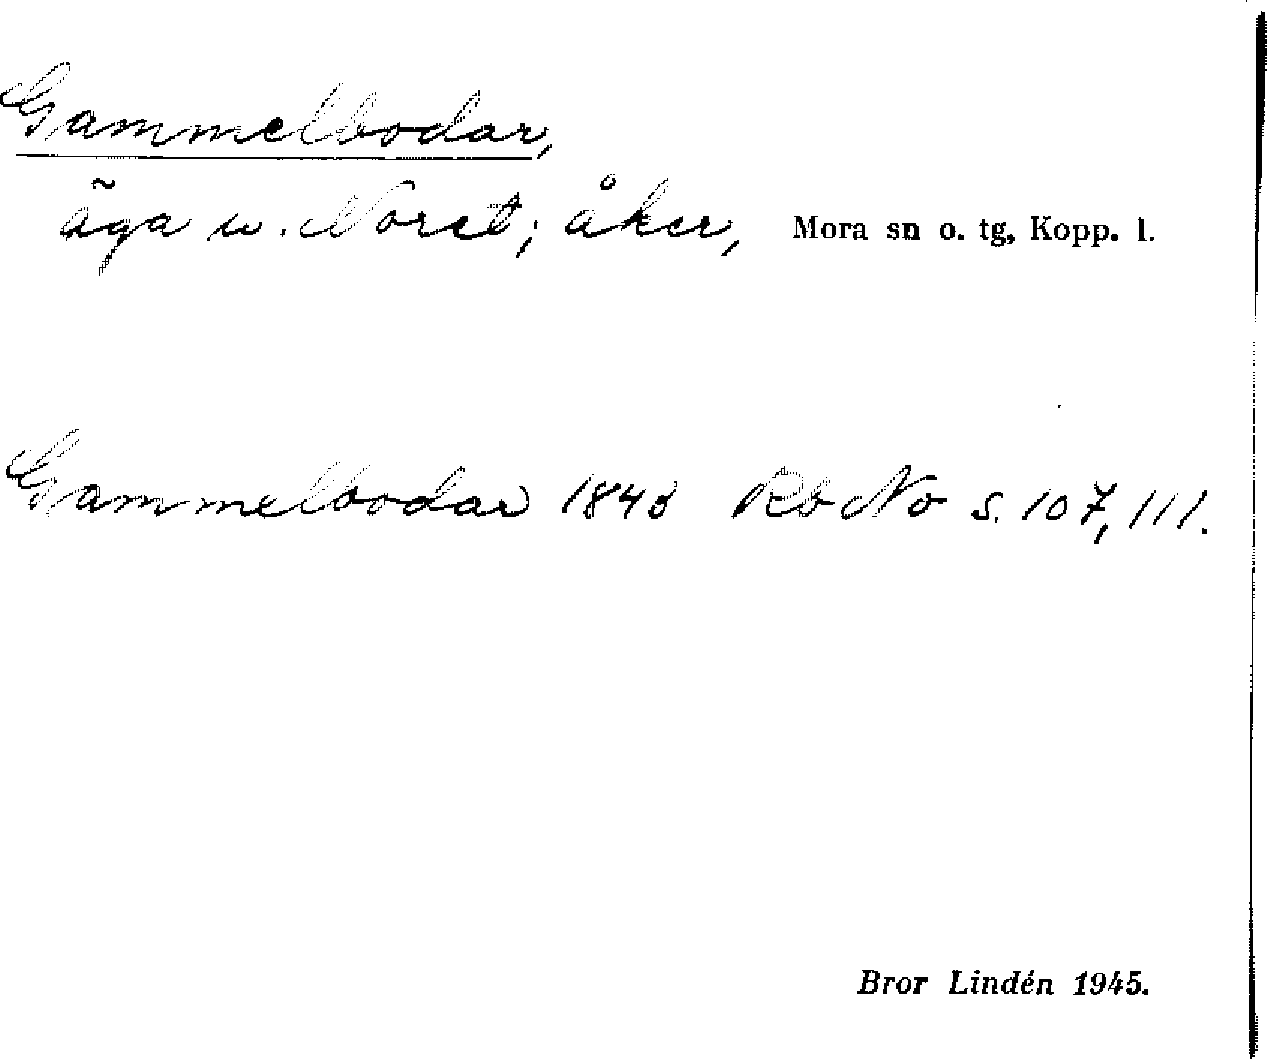 Gammelbodar,
äga u. Noret; åker, Mora sn o. tg, Kopp. l.
Gammelbodar 1843 Rb No s. 107, 111.
Bror Lindén 1945.